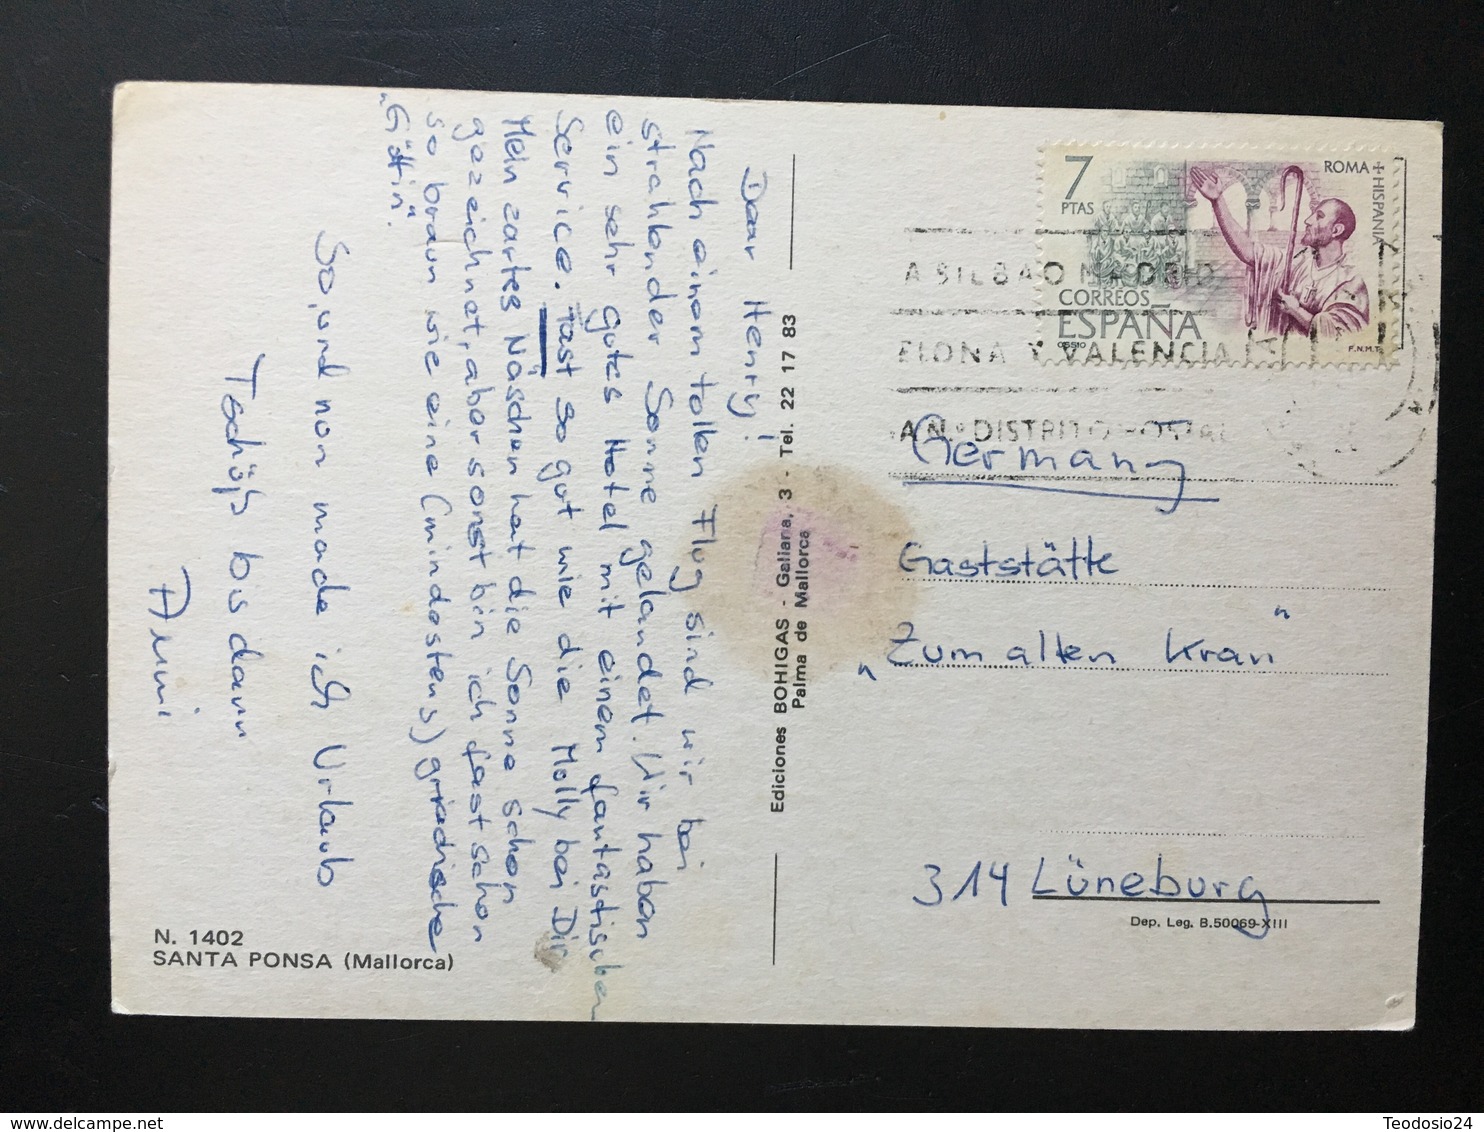 Dear Henry!
Nach einem tollen Flug sind wir bei
strahlender Sonne gelandet. Wir haben
ein sehr gutes Hotel mit einem fantastischen
Service. Fast so gut wie die Molly bei Dir
Mein zartes Näschen hat die Sonne schon
gezeichnet, aber sonst bin ich fast schon
so braun wie eine (mindestens) griechische
"Göttin".
So, und nun mache ich Urlaub
Tschüß bis dann
N. 1402
SANTA PONSA (Mallorca)
Ediciones BOHIGAS - Galiana, 3 - Tel. 22 17 83
Palma de Mallorca
7
PTAS
ROMA + HISPANIA
CORREOS
ESPAÑA
F.N.M.T.
A BILBAO MADRID
ELONA Y VALENCIA
AN. DISTRITO
Germany
Gaststätte
"Zum alten Kran"
314 Lüneburg
Dep. Leg. B.50069-XIII
Teodosio24